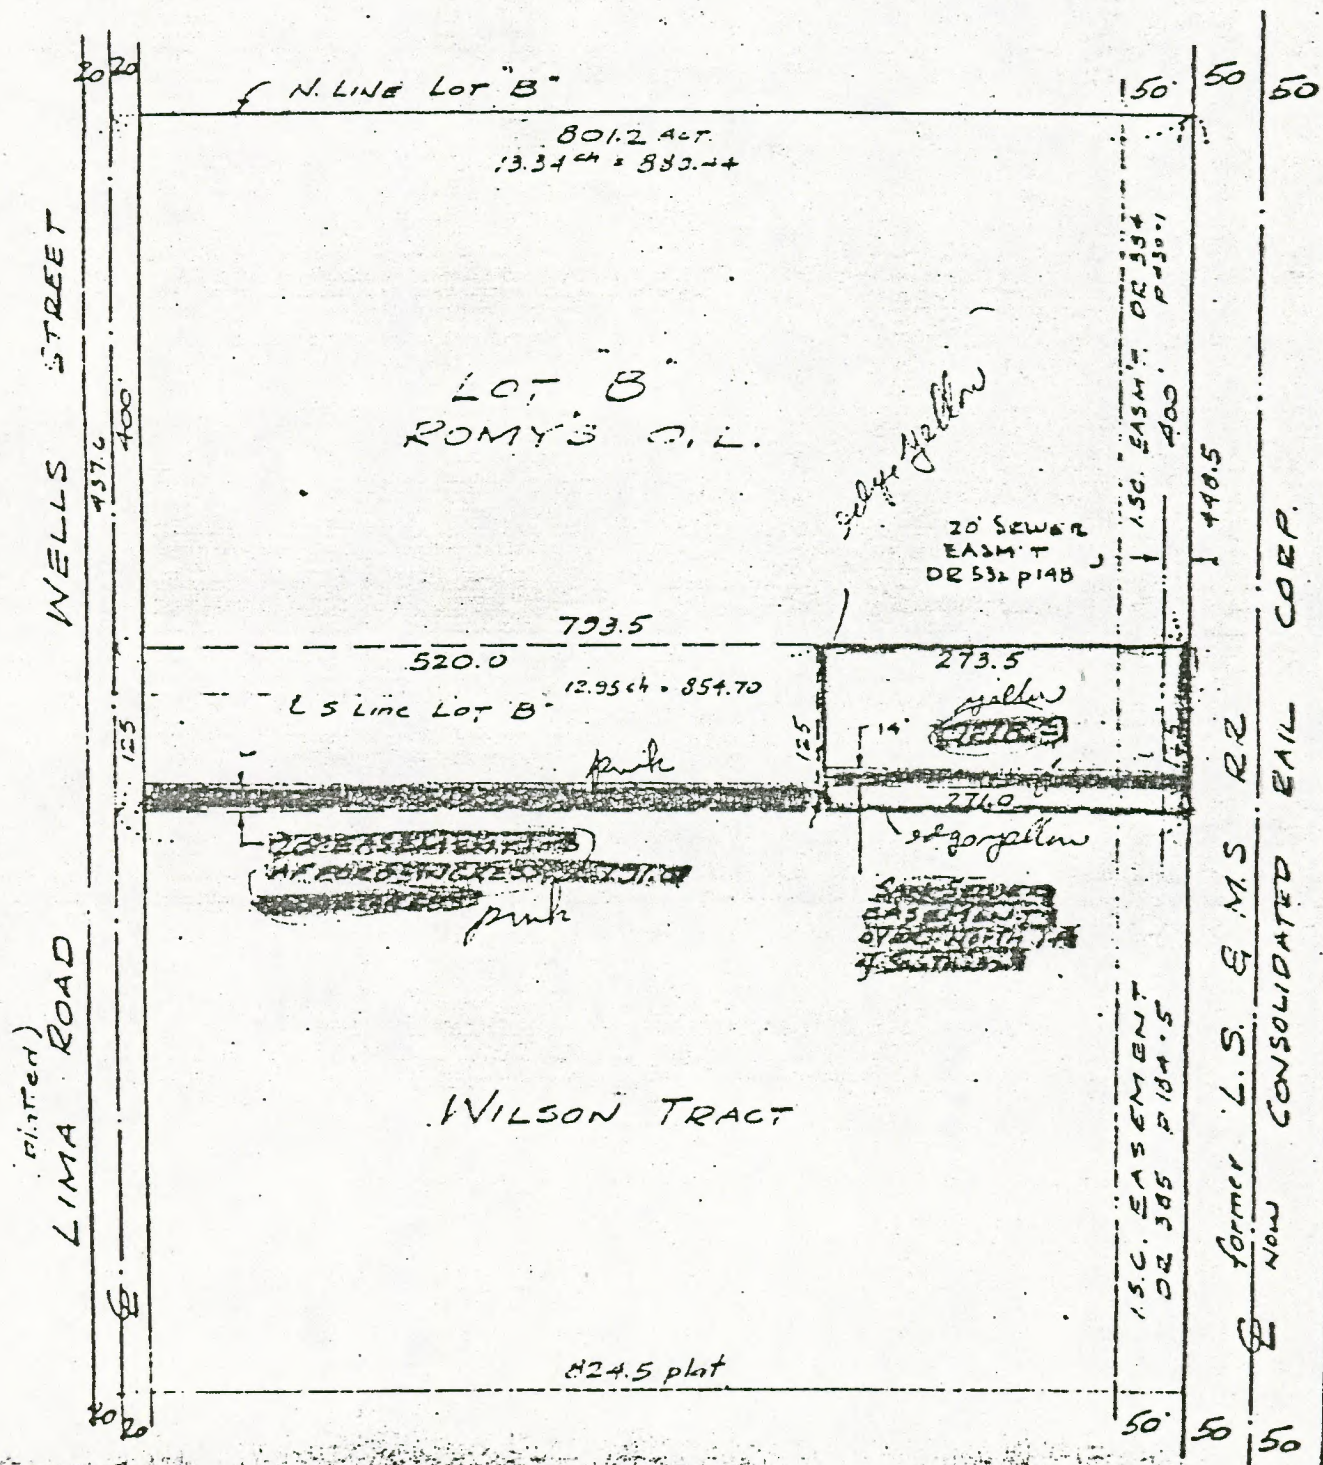 20 20
N. LINE LOT "B"
150' 50 50
801.2 ACT.
13.34 ch =
WELLS STREET
437.6
400'
LOT "B"
ROMY'S O.L.
edge yellow
I.&C. EASM'T. DR 334
400'
448.5
20' SEWER
EASM'T
DR 532 p148
793.5
520.0
273.5
12.95 ch = 854.70
S Line LOT "B"
125
125
14'
yellow
pink
274.0
edge yellow
20' EASEMENT FOR
797.0
pink
SAN. SEWER
EASEMENT
NORTH 14
LIMA ROAD
WILSON TRACT
I.&C. EASEMENT
DR 385 P 184.5
former L.S. & M.S RR
NOW CONSOLIDATED RAIL CORP.
824.5 plat
20 20
50' 50 50